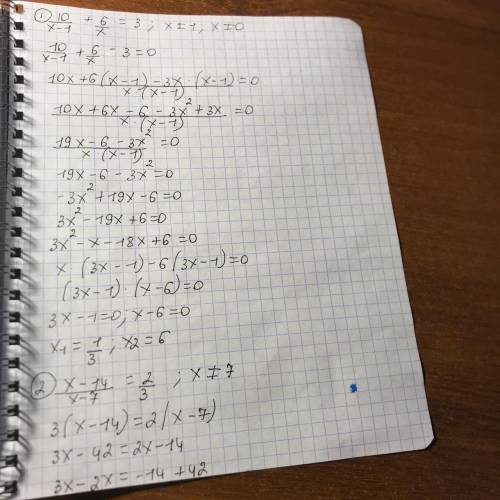 ① 10/(x-1) + 6/x = 3 ; x≠1, x≠0
10/(x-1) + 6/x - 3 = 0
(10x+6(x-1)-3x·(x-1))/(x·(x-1)) = 0
(10x+6x-6-3x²+3x)/(x·(x-1)) = 0
(19x-6-3x²)/(x·(x-1)) = 0
19x-6-3x²=0
-3x²+19x-6=0
3x²-19x+6=0
3x²-x-18x+6=0
x·(3x-1)-6(3x-1)=0
(3x-1)·(x-6)=0
3x-1=0; x-6=0
x₁=1/3; x₂=6
② (x-14)/(x-7) = 2/3 ; x≠7
3(x-14)=2(x-7)
3x-42=2x-14
3x-2x=-14+42